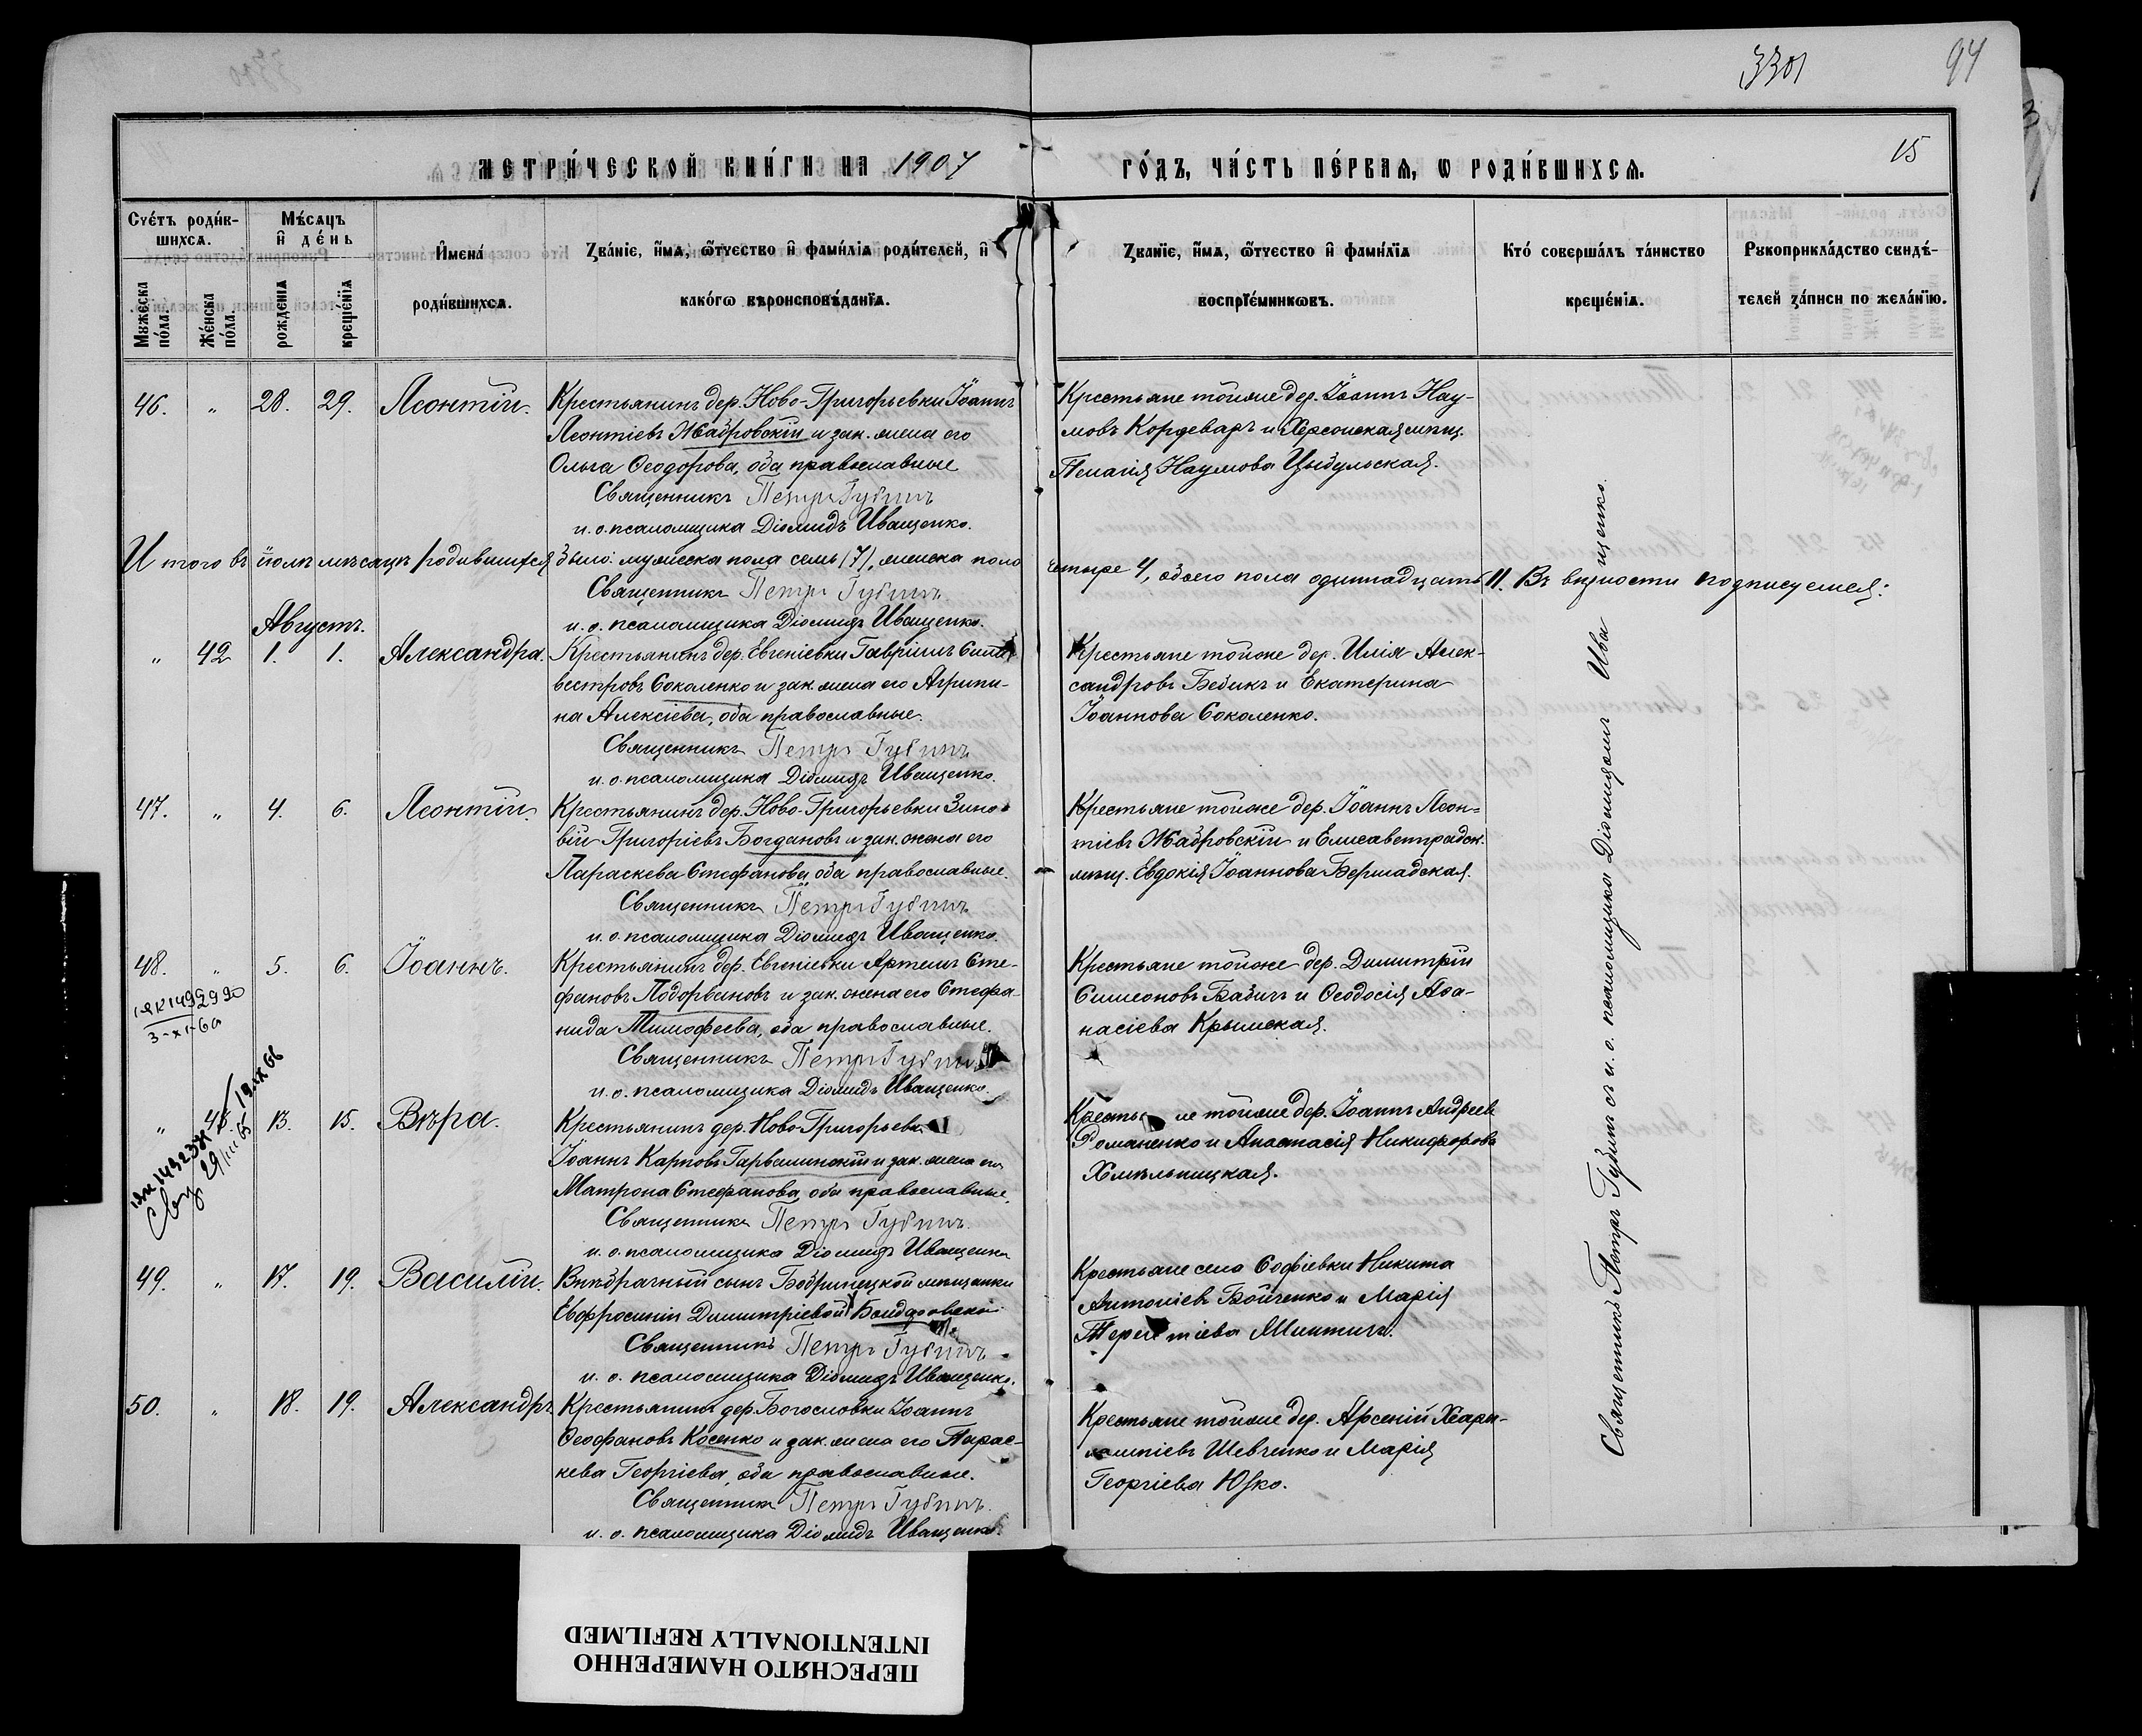 3301
94
15
МЕТРИ́ЧЕСКОЙ КНИ́ГИ НА 1907
ГО́ДЪ, ЧА́СТЬ ПЕ́РВАѦ, Ѡ РОДИ́ВШИХСѦ.
Счетъ роди́в-
шихсѧ.
Мѣ́сѧцъ
и҆ де́нь
И҆мена̀
роди́вшихсѧ.
Зва́нїе, и҆́мѧ, ѻ҆́тчество и҆ фами́лїѧ роди́телей, и҆
како́гѡ вѣроисповѣ́данїѧ.
Зва́нїе, и҆́мѧ, ѻ҆́тчество и҆ фами́лїѧ
воспрїе́мникѡвъ.
Кто́ соверша́лъ та́инство
креще́нїѧ.
Рꙋкоприкла́дство свидѣ́-
телей за́писи по жела́нїю.
Мꙋжеска
по́ла.
Же́нска
по́ла.
рожденїѧ
креще́нїѧ
46. „ 28. 29. Леонтій.
Крестьянинъ дер. Ново-Григорьевки Іоаннъ
Леонтіевъ Жабровскій и зак. жена его
Ольга Ѳеодорова, оба православные
Священникъ Петръ Губинъ
и. о. псаломщика Діомидъ Иващенко.
Крестьяне тойже дер. Іоаннъ Нау-
мовъ Кордеваръ и Херсонская мѣщ.
Пелагія Наумова Цыбульская.
И того въ іюлѣ мѣсяцѣ родившихся было: мужеска пола семь (7), женска пола
четыре 4, обоего пола одиннадцать 11. Въ вѣрности подписуемся:
Священникъ Петръ Губинъ
и. о. псаломщика Діомидъ Иващенко.
Августъ.
„ 42 1. 1. Александра.
Крестьянинъ дер. Евгеніевки Гавріилъ Силь-
вестровъ Соколенко и зак. жена его Агрипи-
на Алексіева, оба православные.
Священникъ Петръ Губинъ
и. о. псаломщика Діомидъ Иващенко.
Крестьяне тойже дер. Илія Алек-
сандровъ Бебикъ и Екатерина
Іоаннова Соколенко.
47. „ 4. 6. Леонтій.
Крестьянинъ дер. Ново-Григорьевки Зино-
вій Григоріевъ Богдановъ и зак. жена его
Параскева Стефанова, оба православные.
Священникъ Петръ Губинъ
и. о. псаломщика Діомидъ Иващенко.
Крестьяне тойже дер. Іоаннъ Леон-
тіевъ Жабровскій и Елисаветградск.
мѣщ. Евдокія Іоаннова Бершадская.
48. „ 5. 6. Іоаннъ.
3-XI-60
Крестьянинъ дер. Евгеніевки Артемъ Сте-
фановъ Подорвановъ и зак. жена его Стефа-
нида Тимофеева, оба православные.
Священникъ Петръ Губинъ
и. о. псаломщика Діомидъ Иващенко.
Крестьяне тойже дер. Димитрій
Симеоновъ Бабичъ и Ѳеодосія Аѳа-
насіева Крымская.
„ 13. 15. Вѣра.
Крестьянинъ дер. Ново-Григорьевки
Іоаннъ Карповъ Гарвалинскій и зак. жена его
Матрона Стефанова, оба православные.
Священникъ Петръ Губинъ.
и. о. псаломщика Діомидъ Иващенко
Крестьяне тойже дер. Іоаннъ Андреевъ
Романенко и Анастасія Никифорова
Хмѣльницкая.
49. „ 17. 19. Василій.
Внѣбрачный сынъ Бобринецкой мѣщанки
Евфросиніи Димитріевой
Священникъ Петръ Губинъ
и. о. псаломщика Діомидъ Иващенко.
Крестьяне села Софіевки Никита
Антоніевъ Бойченко и Марія
Терентіева
50. „ 18. 19. Александръ
Крестьянинъ дер. Богословки Іоаннъ
Ѳеофановъ Косенко и зак. жена его Парас-
кева Георгіева, оба православные.
Священникъ Петръ Губинъ.
и. о. псаломщика Діомидъ Иващенко.
Крестьяне тойже дер. Арсеній Хара-
лампіевъ Шевченко и Марія
Георгіева Юзко.
Священникъ Петръ Губинъ съ и. о. псаломщика Діомидомъ Иващенко.
ПЕРЕСНЯТО НАМЕРЕННО
INTENTIONALLY REFILMED